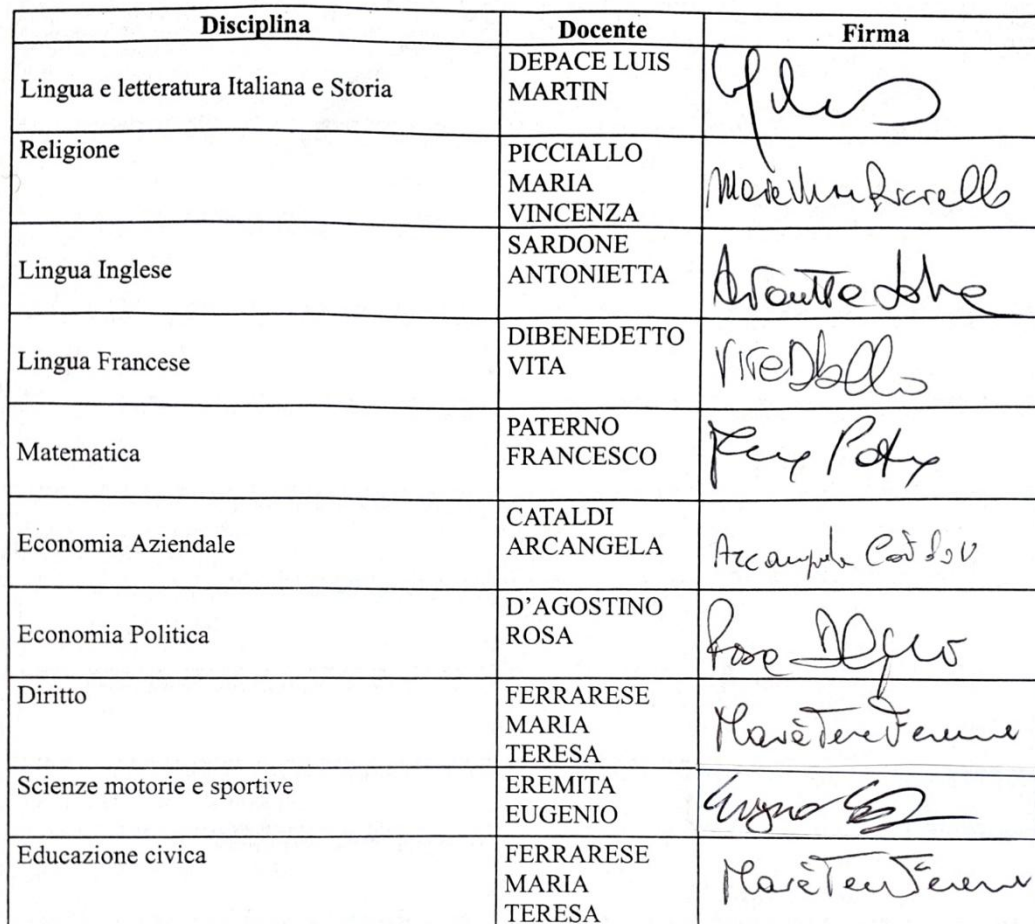 Disciplina Docente Firma
Lingua e letteratura Italiana e Storia
DEPACE LUIS
MARTIN
Religione
PICCIALLO
MARIA
VINCENZA
Lingua Inglese
SARDONE
ANTONIETTA
Lingua Francese
DIBENEDETTO
VITA
Matematica
PATERNO
FRANCESCO
Economia Aziendale
CATALDI
ARCANGELA
Economia Politica
D'AGOSTINO
ROSA
Diritto
FERRARESE
MARIA
TERESA
Scienze motorie e sportive
EREMITA
EUGENIO
Educazione civica
FERRARESE
MARIA
TERESA